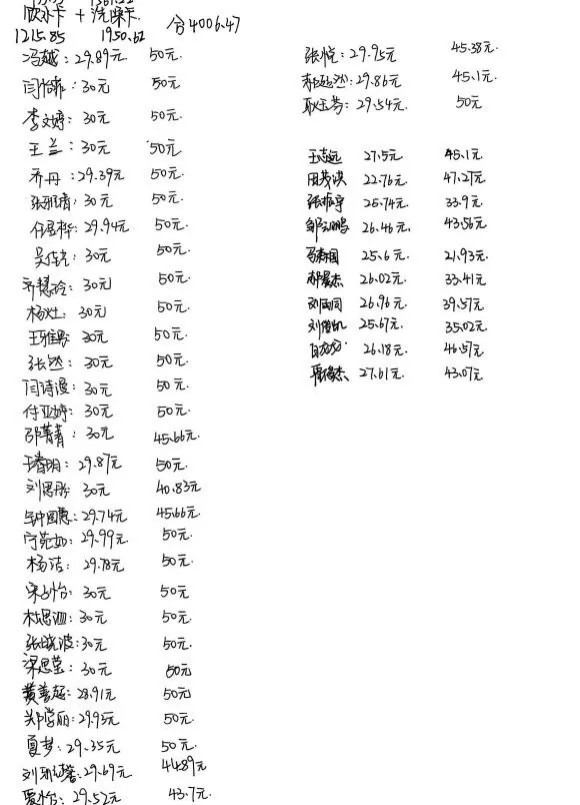 饮水卡 + 洗澡卡 分4006.47
1215.85 1950.62
冯越: 29.89元 50元.
闫怡霏: 30元 50元
李文婷: 30元 50元.
王兰: 30元 50元.
乔丹: 29.39元 50元.
张雅倩: 30元 50元.
29.94元 50元.
30元 50元.
齐慧玲: 30元 50元
杨灶: 30元 50元.
30元 50元.
张然: 30元 50元.
闫诗漫: 30元 50元.
付亚婷: 30元 50元.
邵菁菁: 30元 45.66元.
29.87元 50元.
刘思彤: 30元 40.83元
29.74元 45.66元.
宁苑如: 29.99元 50元.
杨洁: 29.78元 50元.
宋子怡: 30元 50元
杜思泗: 30元 50元.
张晓波: 30元 50元.
梁思莹: 30元 50元
黄善超: 28.91元 50元
郑学丽: 29.95元 50元.
夏梦: 29.35元 50元.
29.69元 44.89元
29.52元 43.7元.
张悦: 29.95元 45.38元.
29.86元 45.1元.
耿玉芳: 29.54元 50元
王志远 27.5元 45.1元
22.76元 47.27元
张振宇 25.74元 33.9元.
26.46元 43.56元
25.6元. 21.93元.
26.02元. 33.41元
26.96元. 39.57元
25.67元. 35.02元.
26.18元. 46.57元
27.61元. 43.07元.